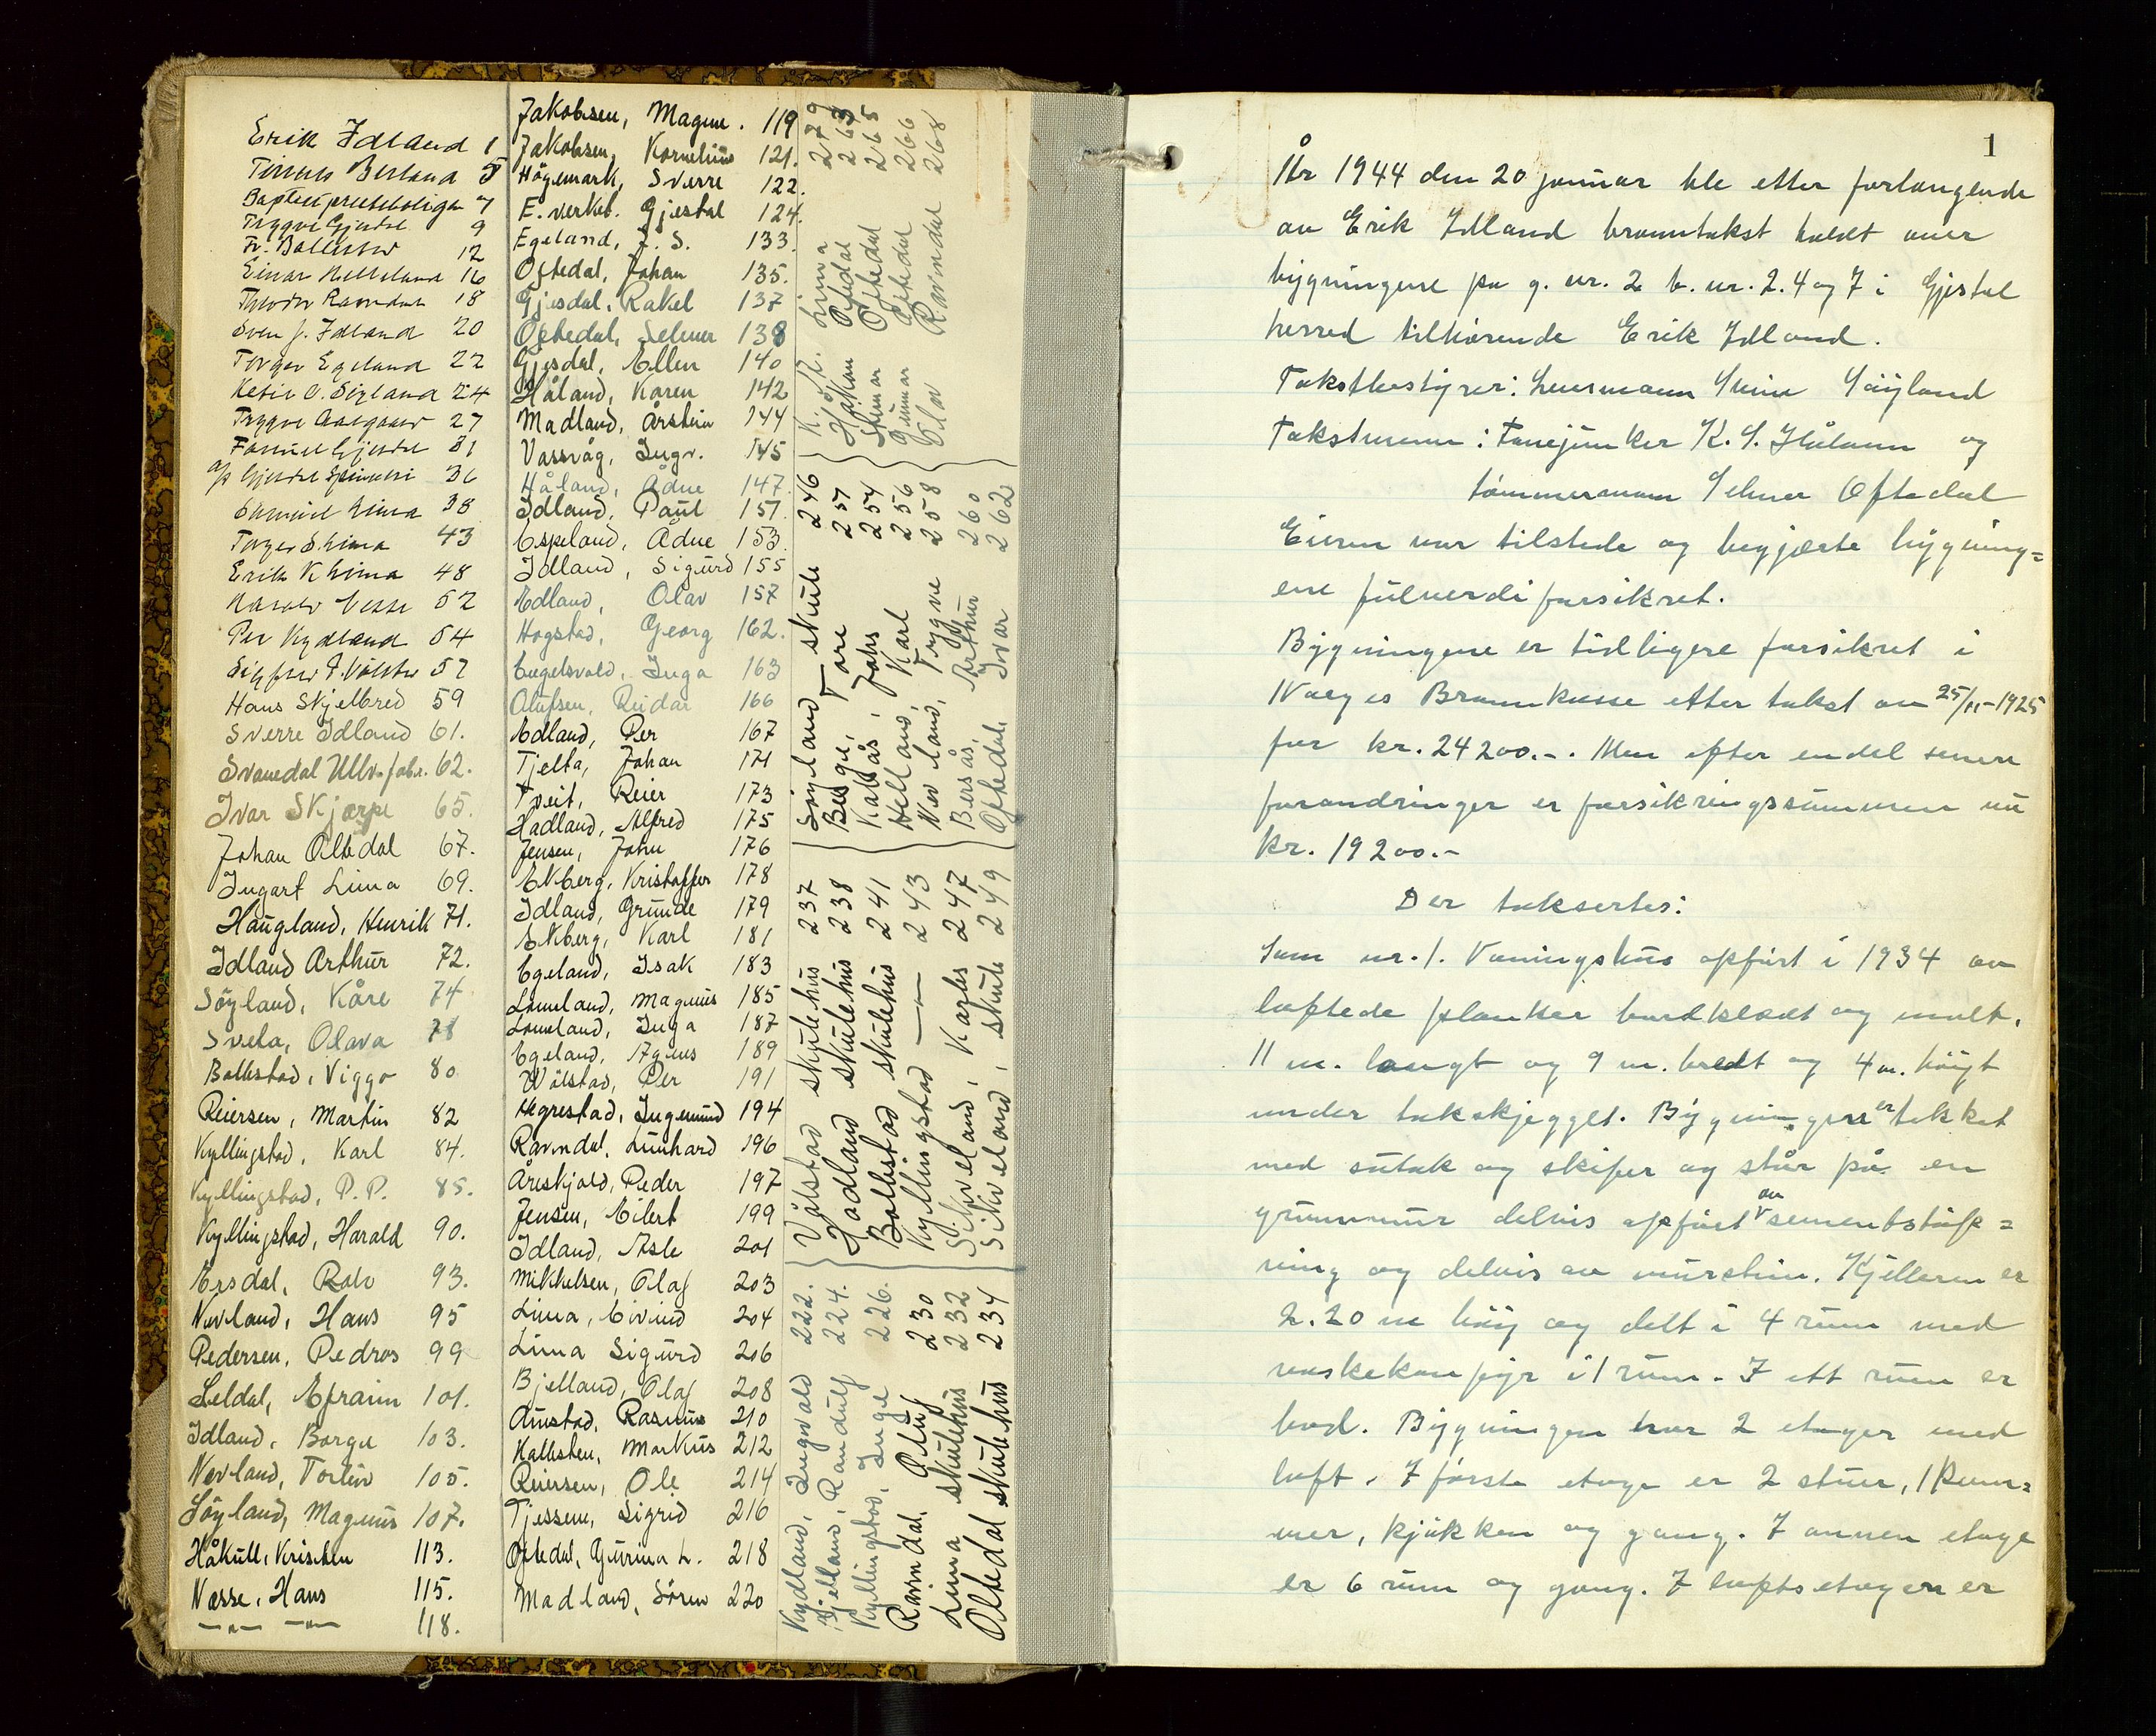 Erik Idland 1
Tinius Berland 5
9
Fr. Bollestad 12
Einar Helleland 16
Theodor Ravndal 18
Sven J. Idland 20
Torger Egeland 22
Ketil O. Sigland 24
Trygve Aalgaard 27
Samuel Gjesdal 31
A/S Gjesdal Spinneri 36
Samuel Lima 38
Torger S Lima 43
Erik K Lima 48
Harald Vesse 52
Per Kydland 54
57
Hans Skjelbred 59
Sverre Idland 61.
Svanedal Ullv.fabr. 62.
Ivar Skjærpe 65.
Johan Oltedal 67.
Ingart Lima 69.
Haugland, Henrik 71.
Idland Arthur 72.
Söyland, Kåre 74
Svela, Olava 78
Bollestad, Viggo 80
Reiersen, Martin 82
Kyllingstad, Karl 84.
Kyllingstad, P. P. 85.
Kyllingstad, Harald 90.
Årsdal, Rolv 93.
Nevland, Hans 95
Pedersen, Pedros 99
Seldal, Efraim 101.
Idland, Borgu 103.
Nevland, Torleiv 105.
Söyland, Magnus 107.
Håkull, Kristen 113.
Næsse, Hans 115.
—"— —"— 118.
Jakobsen, Magne. 119
Jakobsen, Kornelius 121.
Högemark, Sverre 122.
E.verket. Gjestal 124.
Egeland, J. S. 133.
Oftedal, Johan 135.
Gjesdal, Rakel 137
Oftedal, Selmer 138
Gjesdal, Ellen 140
Håland, Karen 142
Madland, Årstein 144
Vassvåg, Ingv. 145
Håland, Ådne 147.
Idland, Paul 151
Espeland, Ådne 153.
Idland, Sigurd 155
Edland, Olav 157
Hogstad, Georg 162.
Engelsvold, Inga 163
Olufsen, Reidar 166
Edland, Per 167
Tjelta, Johan 171
Tveit, Reier 173
Hadland, Alfred 175
Jensen, John 176
Ekberg, Kristoffer 178
Idland, Grunde 179
Ekberg, Karl 181
Egeland, Isak 183
Lomeland, Magnus 185
Lomeland, Inga 187
Egeland, Agnes 189
Wölstad, Per 191
Hegrestad, Ingemund 194
Ravndal, Linhard 196
Åreskjold, Peder 197
Jensen, Eilert 199
Idland, Asle 201
Mikkelsen, Olaf 203
Lima, Eivind 204
Lima Sigurd 206
Bjelland, Olaf 208
Austad, Rasmus 210
Kallesten, Markus 212
Reiersen, Ole 214
Tjessem, Sigrid 216
Oftedal, Gurina L. 218
Madland, Sören 220
Kydland, Ingvald 222.
Bjelland, Randulf 224.
Kyllingstad, Inge 226.
Ravndal, Oluf 230
Lima skulehus 232
Oltedal skulehus 234
Vølstad skulehus 237
Hadland skulehus 238
Bollestad skulehus 241
Kyllingstad —"— 243
Sikveland, Karles 247
Sikveland, skule 249
Söyland skule 246
Berge, Tore 251
Kallås, John 254
Helland, Karl 256
Nevland, Trygve 258
Bersås, Arthur 260
Oftedal, Ivar 262
K. ö. K. Lima 279
Håkon Oftedal 263
Gunnar Oftedal 266
Olav Ravndal 268
1
År 1944 den 20 januar ble etter forlangende
av Erik Idland branntakst holdt over
bygningene på g. nr. 2 b. nr. 2. 4 og 7 i Gjestal
herred tilhörende Erik Idland.
Takstbestyrer: Lensmann Svein Söyland
Takstmenn: Fanejunker K. S. Håland og
tömmermann Selmer Oftedal
Eieren var tilstede og begjærte bygning=
ene fullverdiforsikret.
Bygningene er tidligere forsikret i
Norges Brannkasse etter takst av 25/11-1925
for kr. 24200.-. Men efter endel senere
forandringer er forsikringssummen nu
kr. 19200.-
Der taksertes:
Som nr. 1. Våningshus opfört i 1934 av
laftede planker bordklædt og malt.
11 m. langt og 9 m. bredt og 4 m. höigt
under takskjegget. Bygningene er tekket
med sutak og skifer og står på en
grunnmur delvis opfört av sementstöp=
ning og delvis av mursten. Kjelleren er
2.20 m höi og delt i 4 rum med
vaskekomfyr i 1 rum. I ett rum er
bod. Bygningen har 2 etager med
loft. I förste etage er 2 stuer, 1 kam=
mer, kjökken og gang. I annen etage
er 6 rum og gang. I loftsetagen er